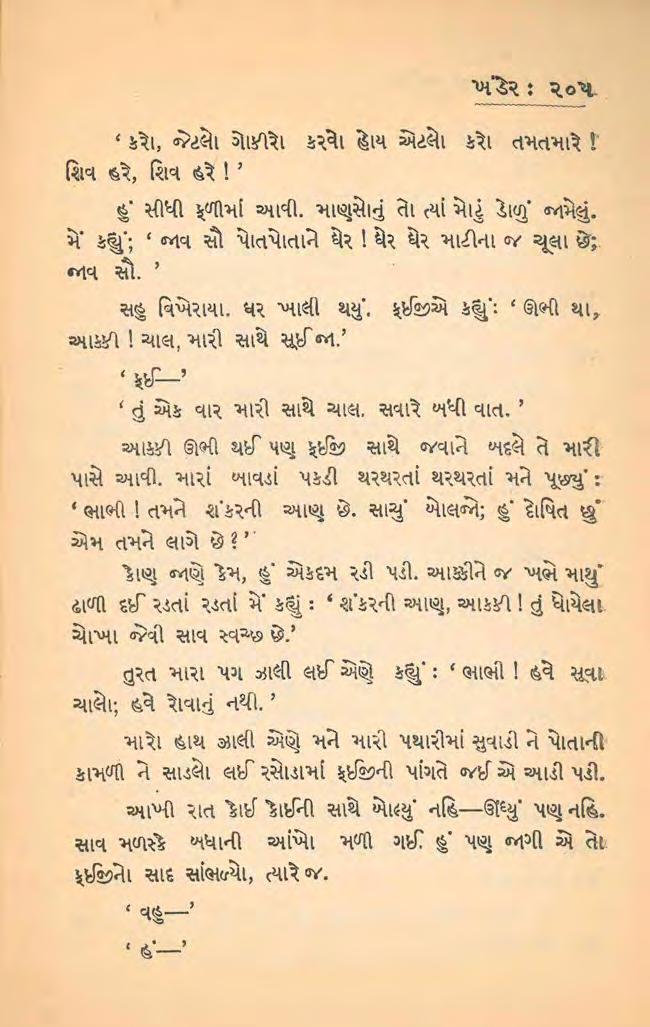 ખંડેર : ૨૦૫
‘ કરો, જેટલો ગોકીરો કરવો હોય એટલો કરો તમતમારે !
શિવ હરે, શિવ હરે ! ’
હું સીધી ફળીમાં આવી. માણસોનું તો ત્યાં મોટું ડોળું જામેલું.
મેં કહ્યું; ‘ જાવ સૌ પોતપોતાને ઘેર ! ઘેર ઘેર માટીના જ ચૂલા છે;
જાવ સૌ. ’
સહુ વિખેરાયા. ઘર ખાલી થયું. ફઈજીએ કહ્યું: ‘ ઊભી થા,
આકકી ! ચાલ, મારી સાથે સૂઈ જા.’
‘ ફઈ—’
‘ તું એક વાર મારી સાથે ચાલ. સવારે બધી વાત. ’
આકકી ઊભી થઈ પણ ફઈજી સાથે જવાને બદલે તે મારી
પાસે આવી. મારાં બાવડાં પકડી થરથરતાં થરથરતાં મને પૂછ્યું :
‘ ભાભી ! તમને શંકરની આણ છે. સાચું બોલજો; હું દોષિત છું
એમ તમને લાગે છે ?’
કોણ જાણે કેમ, હું એકદમ રડી પડી. આકકીને જ ખભે માથું
ઢાળી દઈ રડતાં રડતાં મેં કહ્યું : ‘ શંકરની આણ, આકકી ! તું ધોયેલા
ચોખા જેવી સાવ સ્વચ્છ છે.’
તુરત મારા પગ ઝાલી લઈ એણે કહ્યું : ‘ ભાભી ! હવે સૂવા
ચાલો; હવે રોવાનું નથી. ’
મારો હાથ ઝાલી એણે મને મારી પથારીમાં સુવાડી ને પોતાની
કામળી ને સાડલો લઈ રસોડામાં ફઈજીની પાંગતે જઈ એ આડી પડી.
આખી રાત કોઈ કોઈની સાથે બોલ્યું નહિ—ઊંઘ્યું પણ નહિ.
સાવ મળસ્કે બધાની આંખો મળી ગઈ. હું પણ જાગી એ તો
ફઈજીનો સાદ સાંભળ્યો, ત્યારે જ.
‘ વહુ—’
‘ હં—’